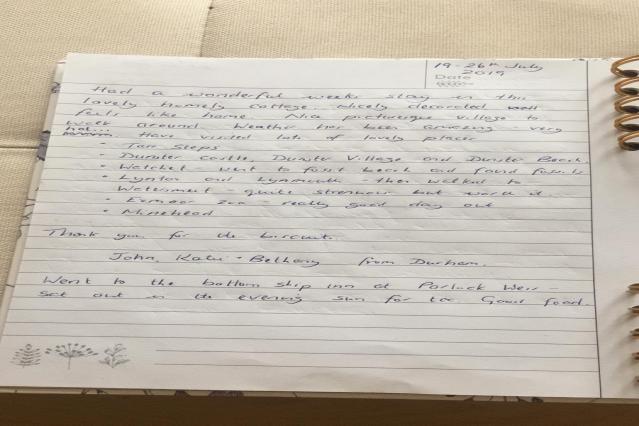 19-26th July
2019
Date
Had a wonderful weeks stay in this
lovely homely cottage. Nicely decorated
feels like home. Nice picturesque village to
walk around. Weather has been amazing very
hot... Have visited lots of lovely places
• Tarr Steps
• Dunster castle, Dunster Village and Dunster Beach.
• Watchet - went to fossil beach and found fossils
• Lynton and Lynmouth - then walked to
Watersmeet - quite strenuous but worth it.
• Exmoor Zoo - really good day out
• Minehead
Thank you for the biscuits.
John, Kate + Bethany from Durham.
Went to the bottom ship inn at Porlock Weir -
sat out in the evening sun for tea. Good food.